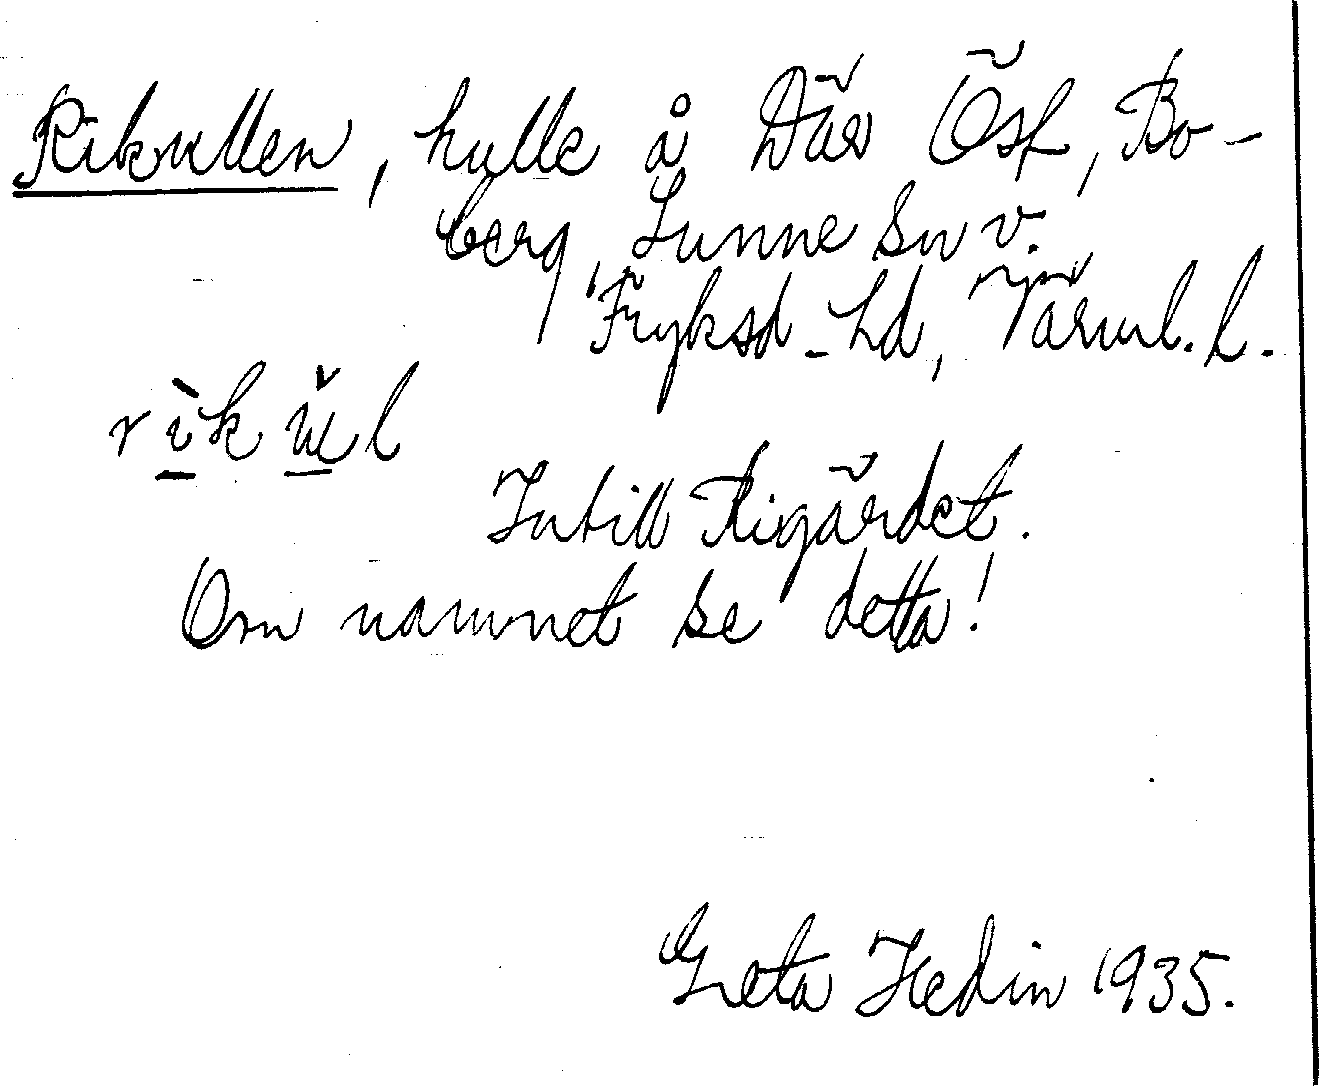 Rikullen, kulle å Där Öst, Bo-
berg, Sunne sn v.
Fryksd. hd, Värml. l.
rìkŭl
Intill Rigärdet.
Om namnet se detta!
Greta Hedin 1935.